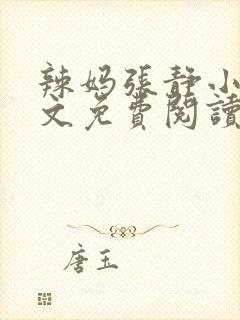 辣妈張静小
文免費閱讀
唐玉